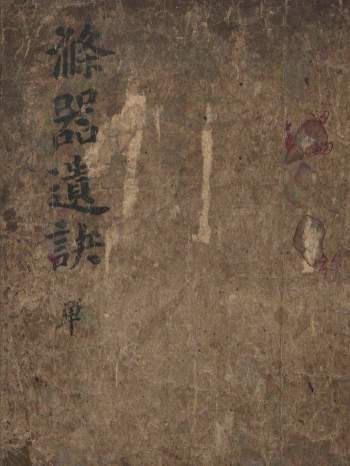 滌器遺訣 單